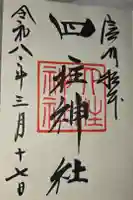 信州松本
四柱神社
令和八年三月十七日